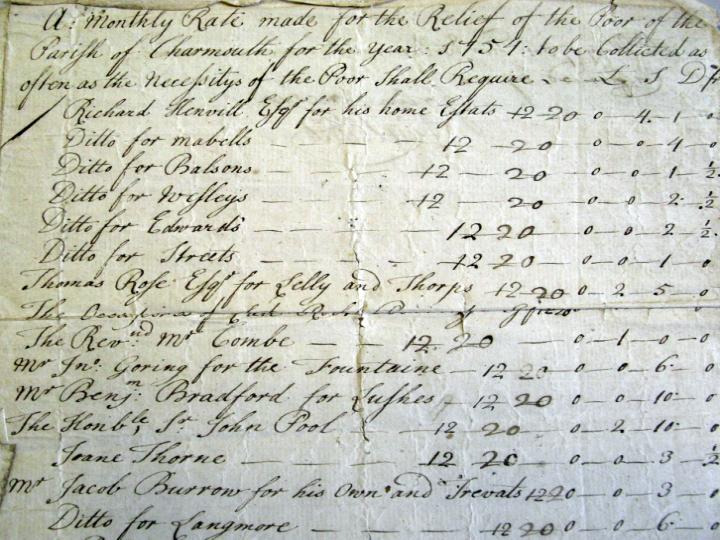 A: Monthly Rate made for the Relief of the Poor of the
Parish of Charmouth for the Year: 1754: to be Collicted as
often as the Necessitys of the Poor Shall Require L S D
Richard Henvill Esqr for his home Estats 12 20 0 4 1 0
Ditto for mabells 12 20 0 0 4 0
Ditto for Balsons 12 20 0 0 1 ½
Ditto for Wesleys 12 20 0 0 2 ½
Ditto for Edwards 12 20 0 0 2 ½
Ditto for Streets 12 20 0 0 1 0
Thomas Rose Esqr for Lelly and Thorps 12 20 0 2 5 0
The of
The Revnd Mr Combe 12 20 0 1 0 0
Mr Jno: Goring for the Fountaine 12 20 0 0 6 0
Mr Benjm: Bradford for Lushes 12 20 0 0 10 0
The Honble, Sr John Pool 12 20 0 2 10 0
Joane Thorne 12 20 0 0 3 ½
Mr Jacob Burrow for his Own and Trevats 12 20 0 0 3 0
Ditto for Langmore 12 20 0 0 6 0